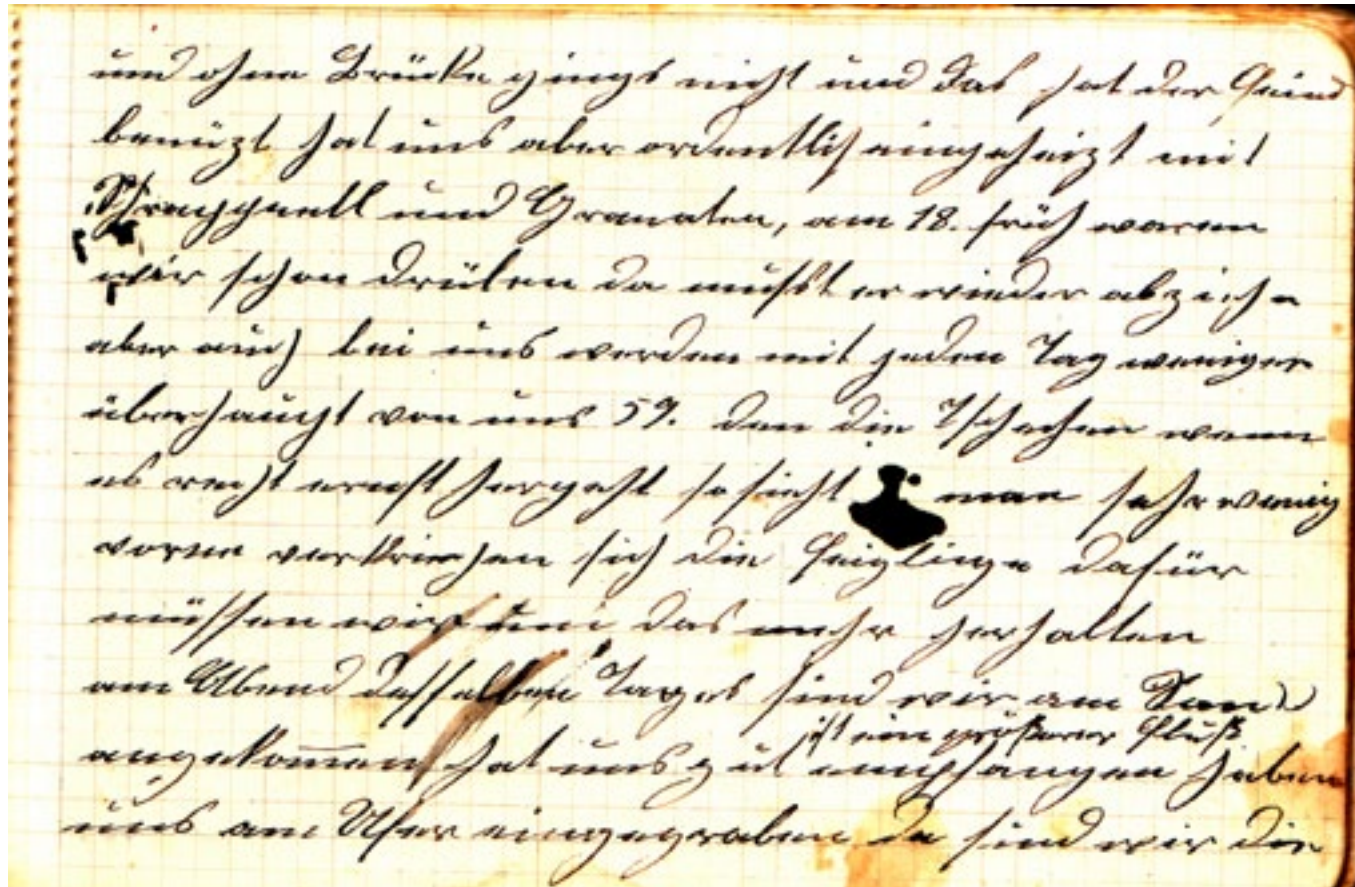 und ohne Brücke gings nicht und das hat der Feind
benüzt hat uns aber ordentlich eingeheizt mit
Schrappnell und Granaten, am 18. früh waren
wir schon drüben da mußt er wieder abzieh-
aber auch bei uns werden mit jeden Tag weniger
überhaupt von uns 59. den die Tschechen wenn
es recht ernst hergeht so sieht man sehr wenig
vorne verkriechen sich die Feiglinge dafür
müssen wir das mehr herhalten
am Abend desselben Tages sind wir am San
ist ein größerer Fluß
angekommen hat uns gut empfangen haben
uns am Ufer eingegraben da sind wir die